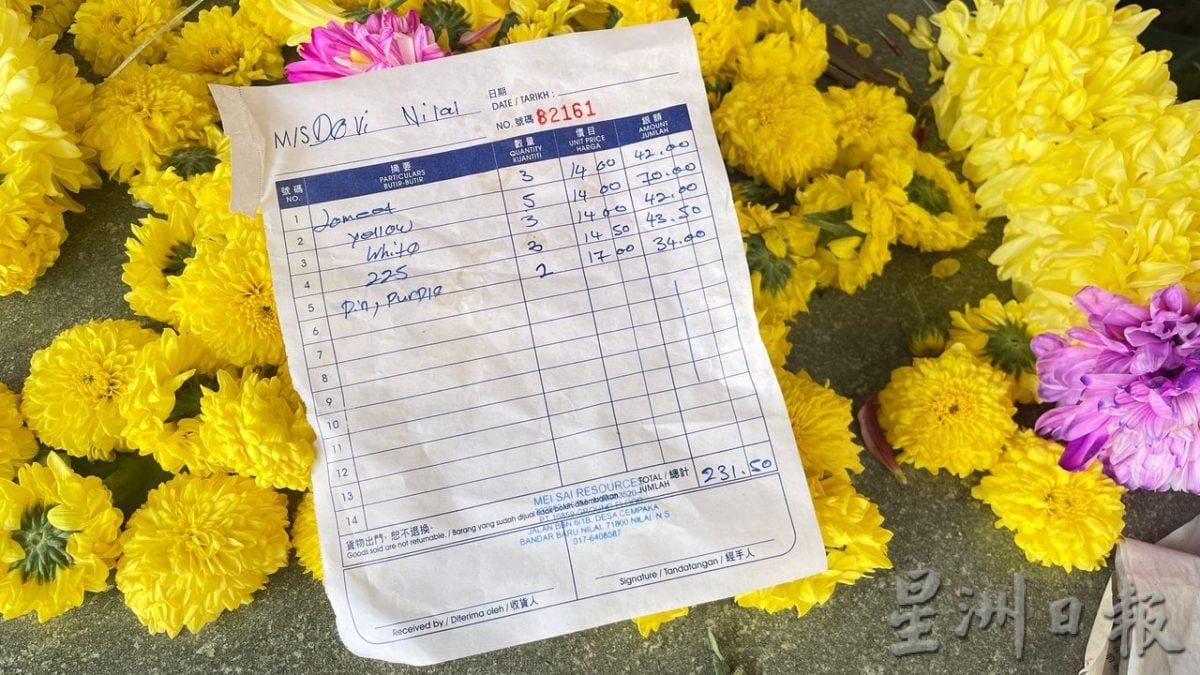 日期
M/S Dovi Nilai DATE / TARIKH :
NO. 號碼 82161
號碼 摘要 數量 價目 銀額
NO. PARTICULARS QUANTITY UNIT PRICE AMOUNT
BUTIR-BUTIR KUANTITI HARGA JUMLAH
1 3 14 00 42.00
2 yellow 5 14 00 70.00
3 White 3 14 00 42.00
4 225 3 14 50 43.50
5 Pin, purple 2 17 00 34.00
6
7
8
9
10
11
12
13
14
TOTAL / 總計 231.50
JUMLAH
貨物出門，恕不退換·
Goods sold are not returnable. / Barang yang sudah dijual tidak boleh dikembalikan
MEI SAI RESOURCES
PT 10859 GROUND FLOOR
JALAN BBN 6/1B, DESA CEMPAKA
BANDAR BARU NILAI, 71800 NILAI N S
017-6408587
Received by / Diterima oleh / 收貨人
Signature / Tandatangan / 經手人
星洲日報